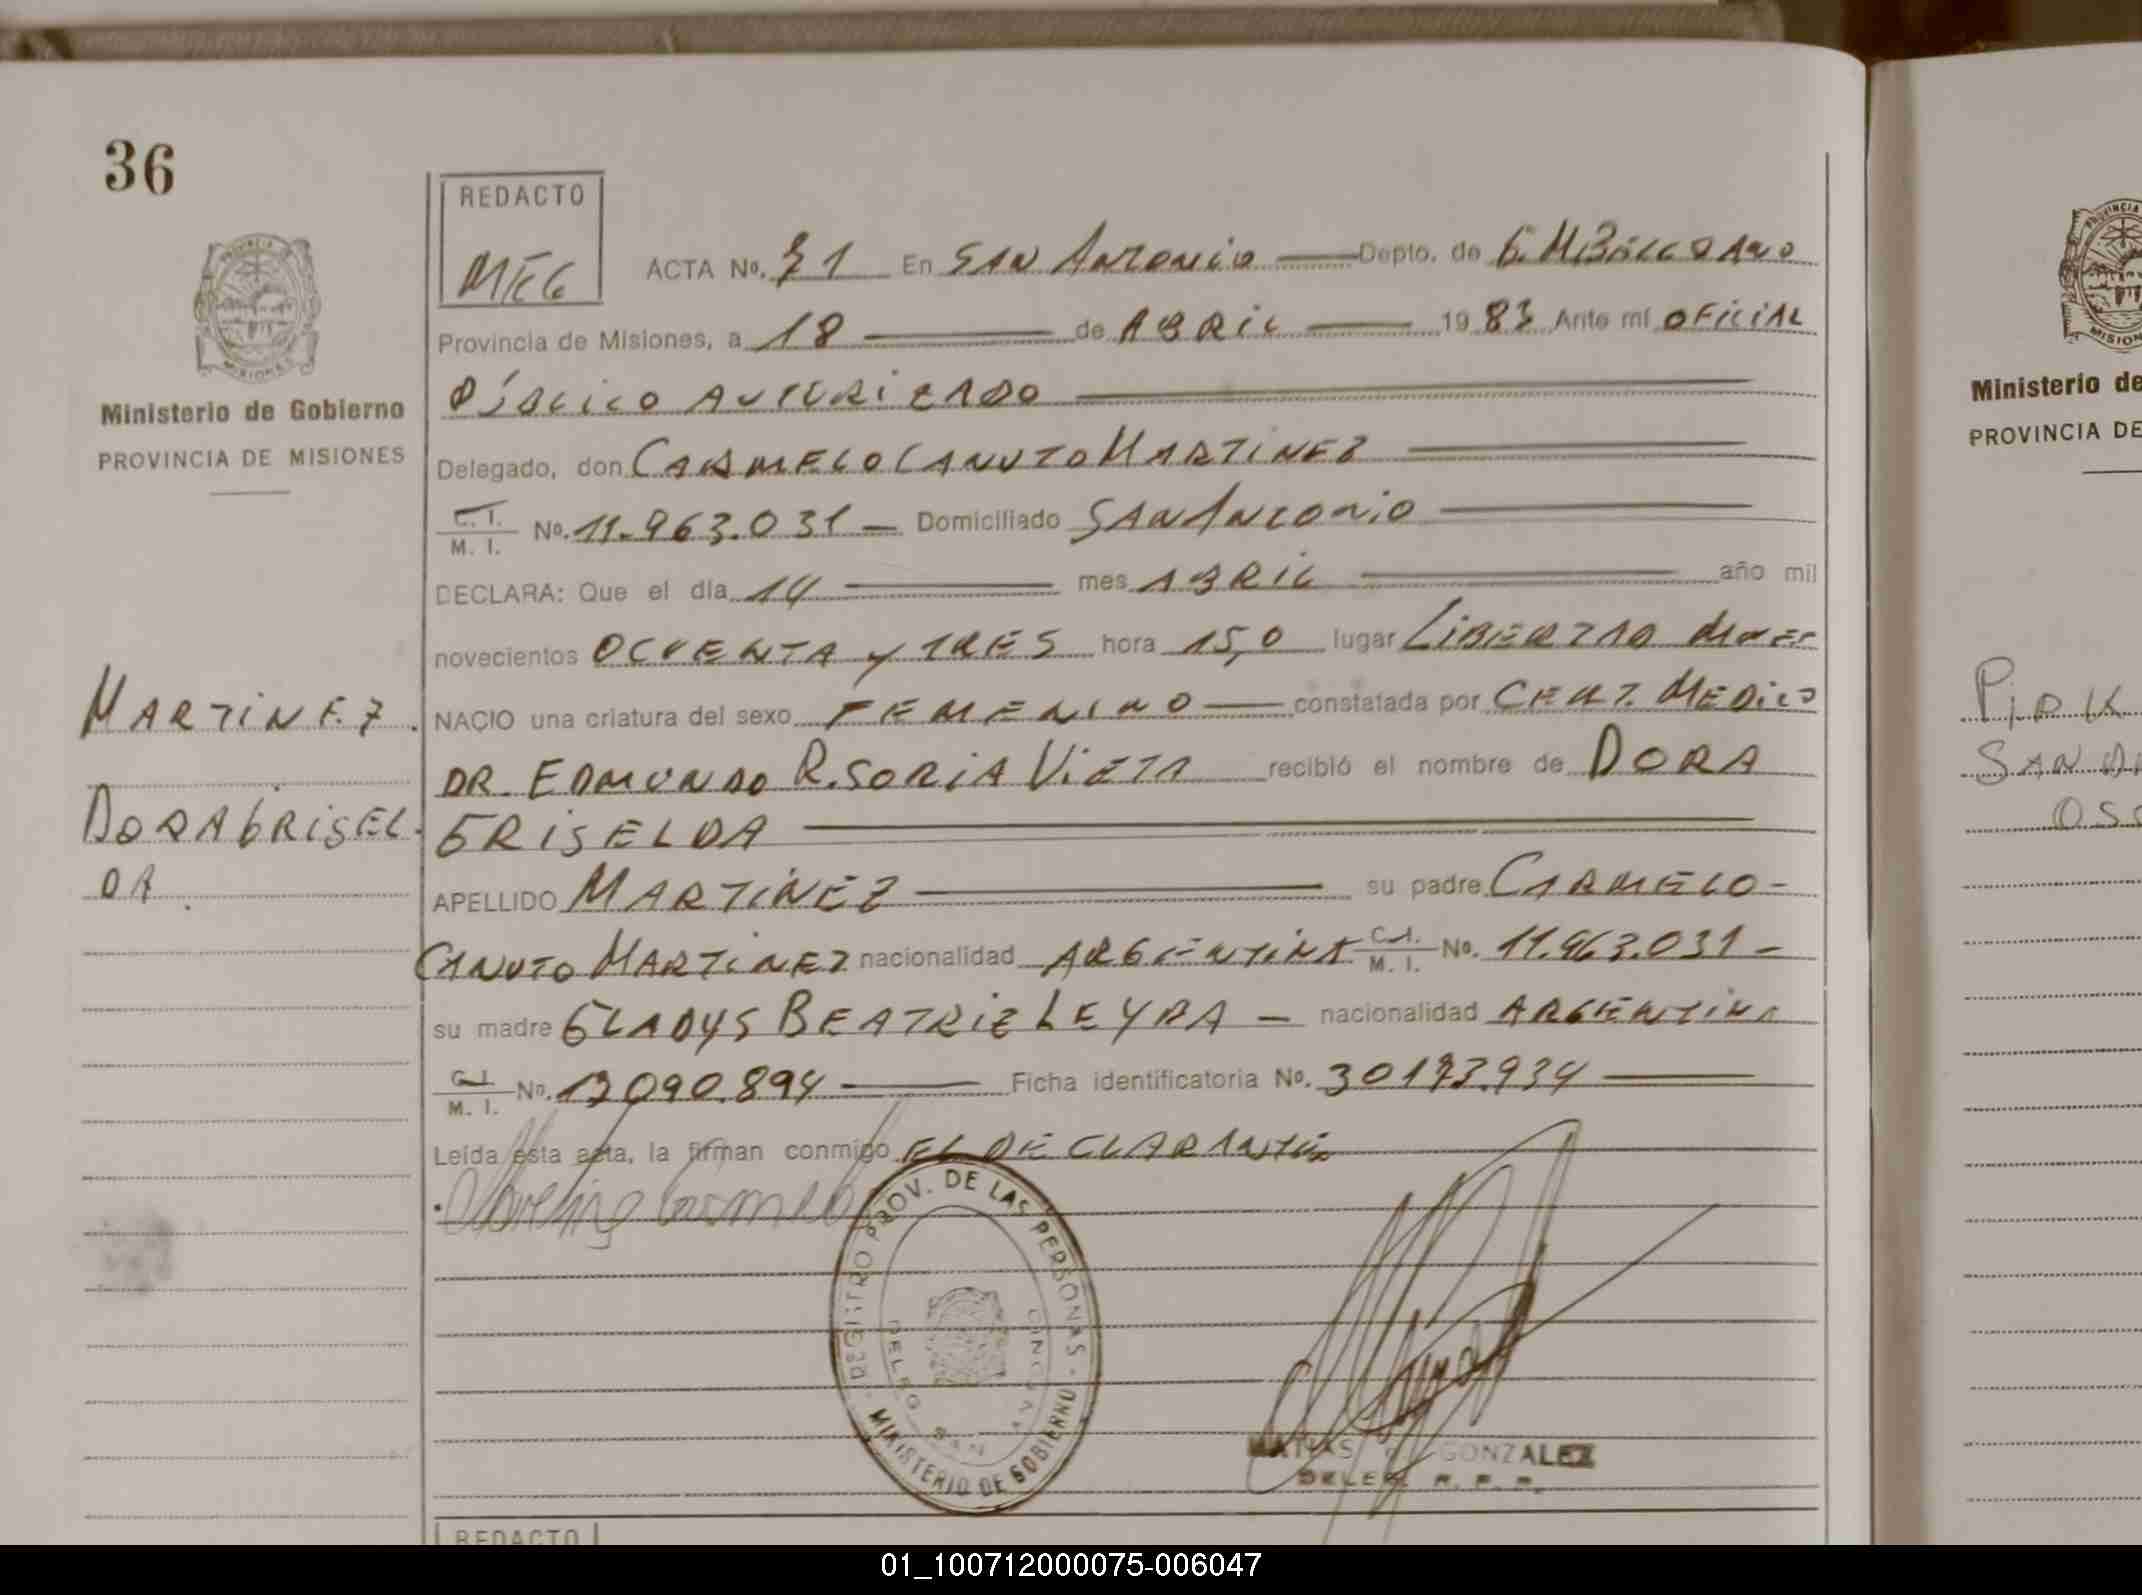 36
REDACTO
MEG
ACTA No. 71 En SAN ANTONIO Depto. de G. M. BELGRANO
Provincia de Misiones, a 18 de ABRIL 1983 Ante mí OFICIAL
PÚBLICO AUTORIZADO
Delegado, don CARMELO CANUTO MARTINEZ
C. I.
M. I. No. 11.963.031 Domiciliado SAN ANTONIO
DECLARA: Que el día 14 mes ABRIL año mil
novecientos OCHENTA y TRES hora 15,0 lugar LIBERTAD
NACIO una criatura del sexo FEMENINO constatada por CERT. MEDICO
DR. EDMUNDO R. SORIA VIETA recibió el nombre de DORA
GRISELDA
APELLIDO MARTINEZ su padre CARMELO
CANUTO MARTINEZ nacionalidad ARGENTINA C.I. M. I. No. 11.963.031
su madre GLADYS BEATRIZ LEYRA nacionalidad ARGENTINA
C.I.
M. I. No. 12090.894 Ficha identificatoria No. 30173.934
Leída esta acta, la firman conmigo EL DECLARANTE
PROVINCIA
MISIONES
Ministerio de Gobierno
PROVINCIA DE MISIONES
MARTINEZ
DORA GRISEL
DA
REGISTRO PROV. DE LAS PERSONAS
MINISTERIO DE GOBIERNO
DELEG. SAN
MATIAS GONZALEZ
DELEG. R. P. P.
REDACTO
Ministerio de
PROVINCIA DE
SAN
01_100712000075-006047